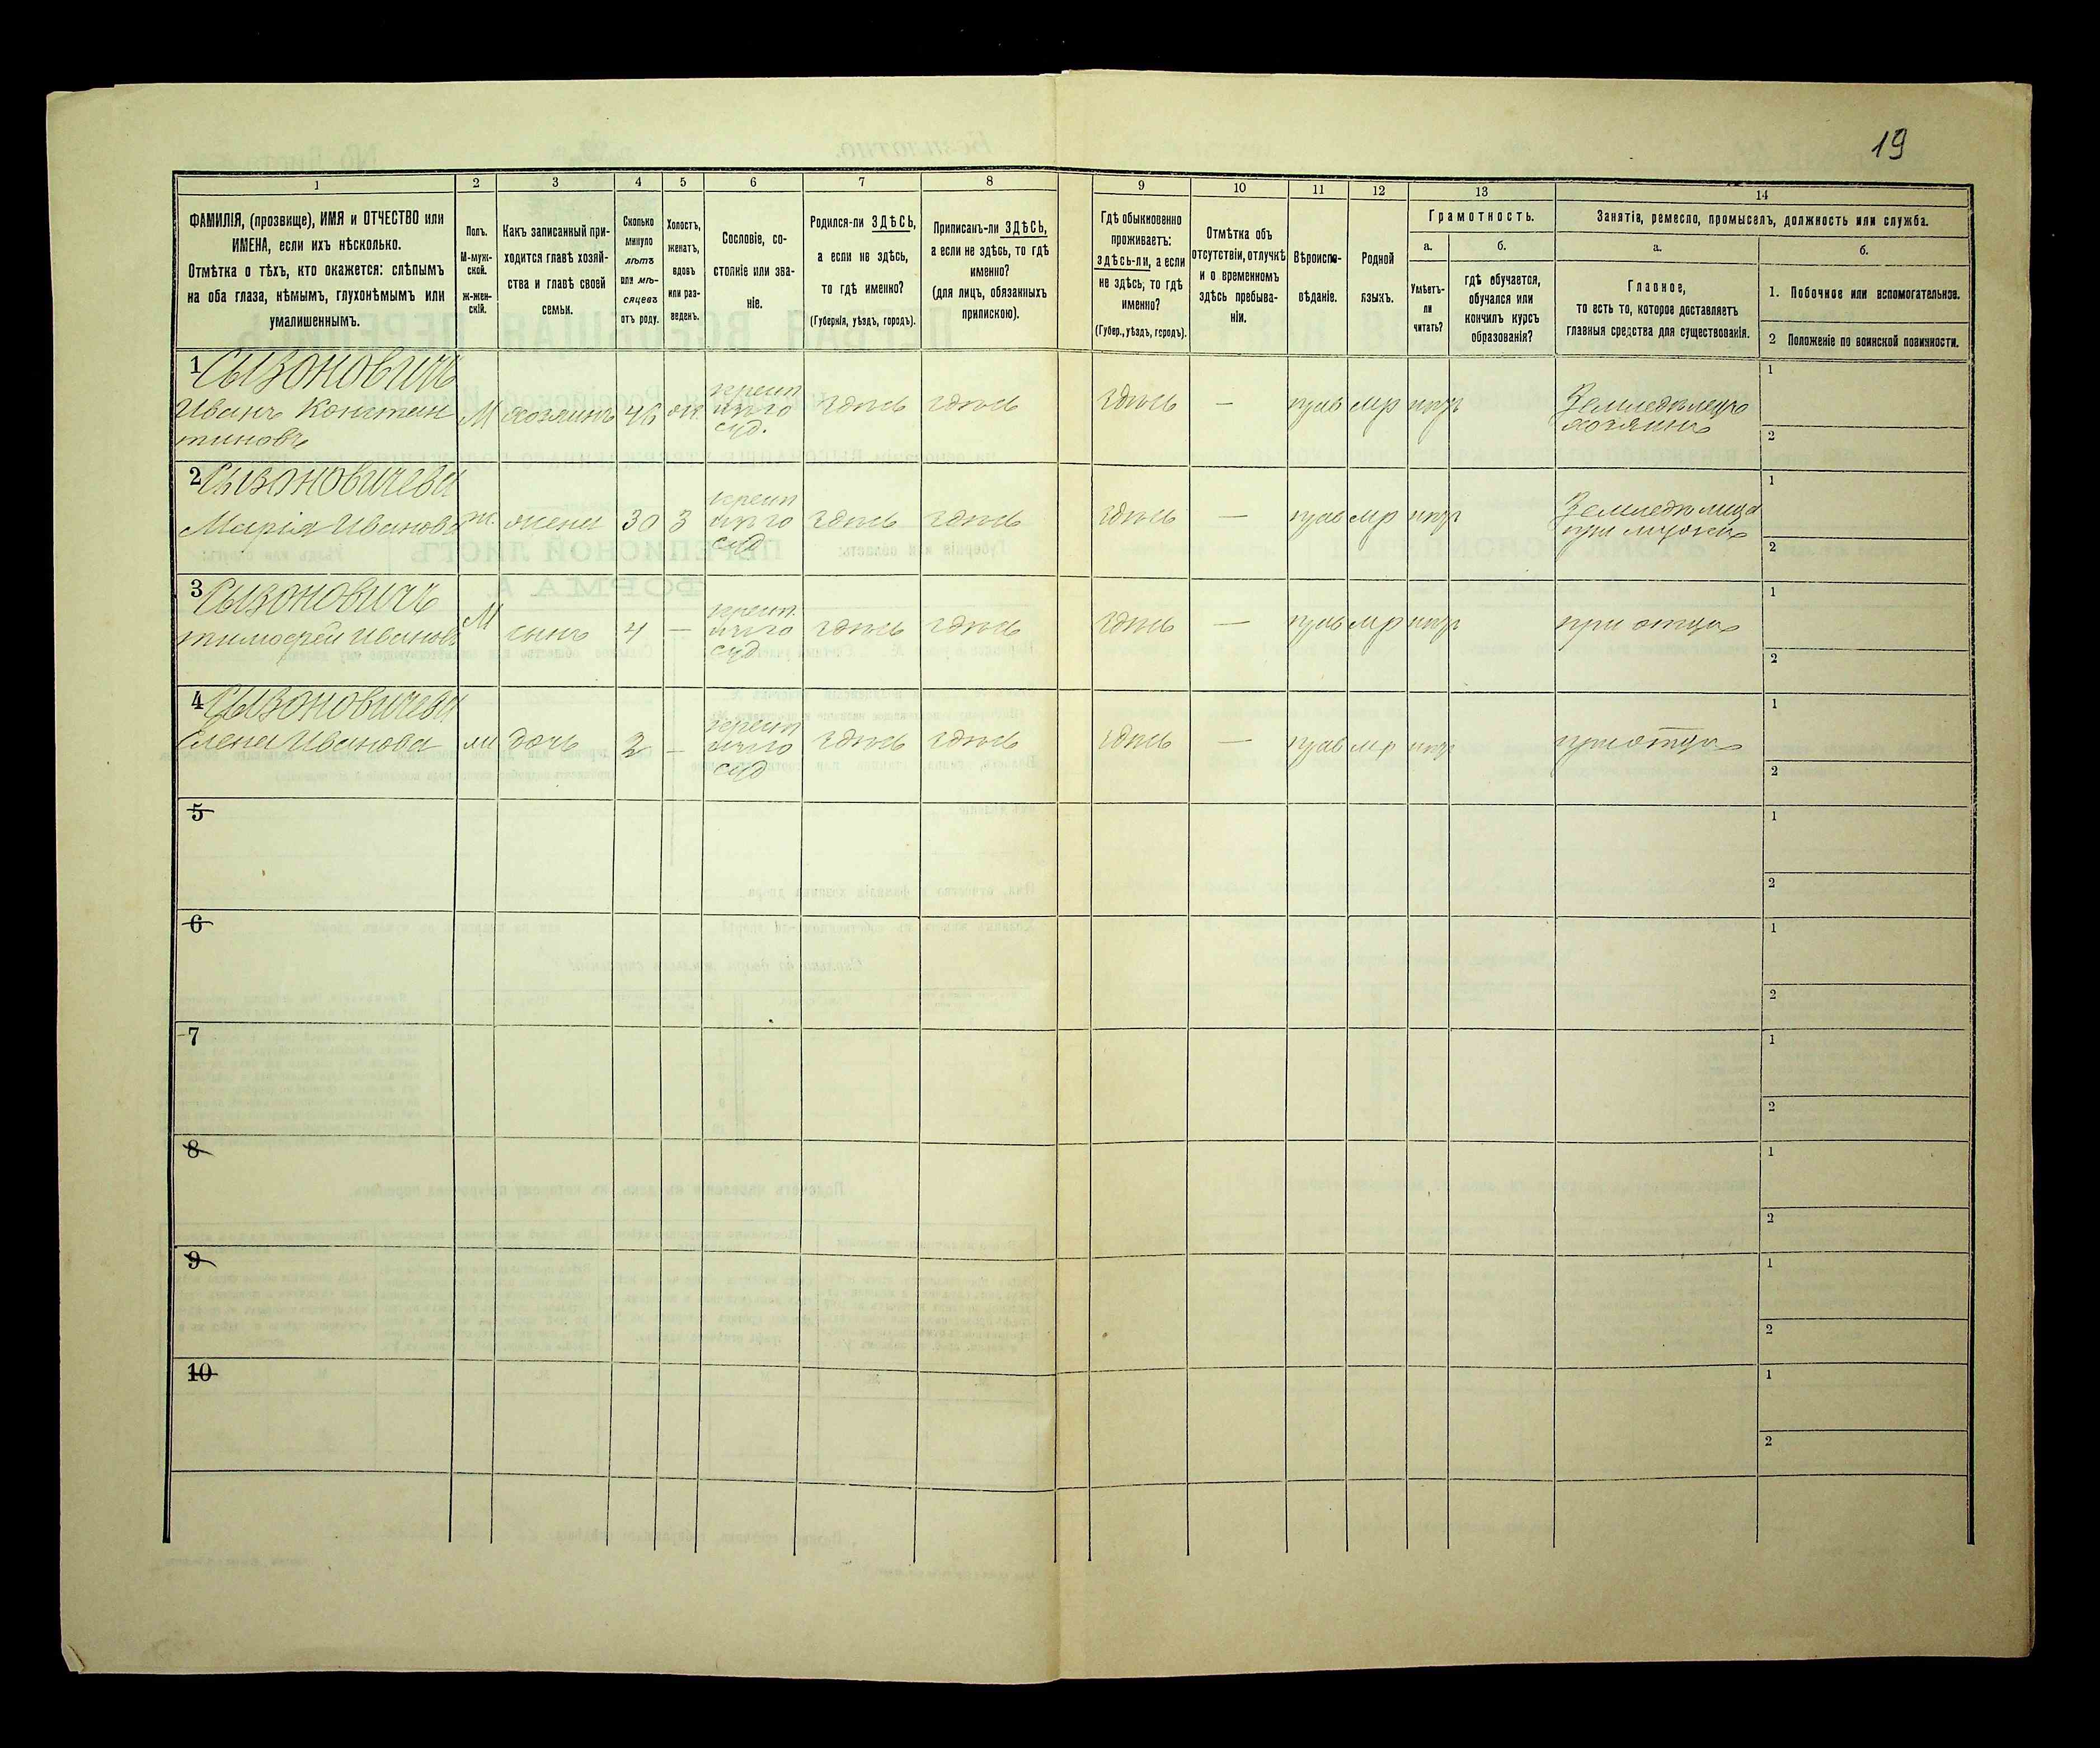 19
1 2 3 4 5 6 7 8 9 10 11 12 13 14
ФАМИЛІЯ, (прозвище), ИМЯ и ОТЧЕСТВО или
ИМЕНА, если ихъ нѣсколько.
Отмѣтка о тѣхъ, кто окажется: слѣпымъ
на оба глаза, нѣмымъ, глухонѣмымъ или
умалишеннымъ.
Полъ.
М-муж-
ской.
Ж-жен-
скій.
Какъ записанный при-
ходится главѣ хозяй-
ства и главѣ своей
семьи.
Сколько
минуло
лѣтъ
или мѣ-
сяцевъ
отъ роду.
Холостъ,
женатъ,
вдовъ
или раз-
веденъ.
Сословіе, со-
стояніе или зва-
ніе.
Родился-ли ЗДѢСЬ,
а если не здѣсь,
то гдѣ именно?
(Губернія, уѣздъ, городъ).
Приписанъ-ли ЗДѢСЬ,
а если не здѣсь, то гдѣ
именно?
(для лицъ, обязанныхъ
припискою).
Гдѣ обыкновенно
проживаетъ:
здѣсь-ли, а если
не здѣсь, то гдѣ
именно?
(Губер., уѣздъ, городъ).
Отмѣтка объ
отсутствіи, отлучкѣ
и о временномъ
здѣсь пребыва-
ніи.
Вѣроиспо-
вѣданіе.
Родной
языкъ.
Грамотность.
а.
Умѣетъ-
ли
читать?
б.
гдѣ обучается,
обучался или
кончилъ курсъ
образованія?
Занятія, ремесло, промыселъ, должность или служба.
а.
Главное,
то есть то, которое доставляетъ
главныя средства для существованія.
б.
1. Побочное или вспомогательное.
2 Положеніе по воинской повинности.
1 Сызоновичъ
Иванъ Констан
тиновъ
М хозяинъ 46 жн.
крест
суд.
здѣсь здѣсь здѣсь — прав мр
Земледѣлецъ
хозяинъ
1
2
2 Сызоновичева
Марія Иванова
ж. жена 30 з
крест
суд
здѣсь здѣсь здѣсь — прав мр
Земледѣлица
при мужѣ
1
2
3 Сызоновичъ
тимофей Ивановъ
М сынъ 4 —
крест.
суд.
здѣсь здѣсь здѣсь — прав мр
при отцѣ
1
2
4 Сызоновичева
Елена Иванова
дочь 2 —
крест
суд
здѣсь здѣсь здѣсь — прав мр
при отцѣ
1
2
5
1
2
6
1
2
7
1
2
8
1
2
9
1
2
10
1
2